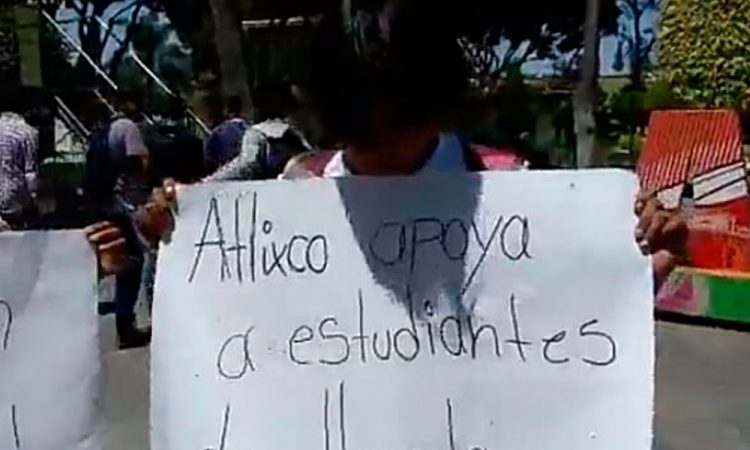 Atlixco apoya
a estudiantes